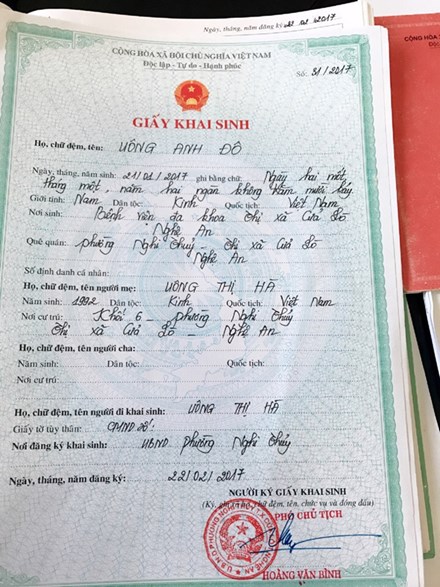 Ngày, tháng, năm đăng ký: 2017
CỘNG HÒA XÃ HỘI CHỦ NGHĨA VIỆT NAM
Độc lập - Tự do - Hạnh phúc
Số: 31/2017
GIẤY KHAI SINH
Họ, chữ đệm, tên: UÔNG ANH ĐÔ
Ngày, tháng, năm sinh: 21/01/2017 ghi bằng chữ: Ngày hai mốt
tháng một, năm hai ngàn không trăm mười bảy
Giới tính: Nam Dân tộc: Kinh Quốc tịch: Việt Nam
Nơi sinh: Bệnh viện đa khoa thị xã Cửa Lò
Nghệ An
Quê quán: phường Nghi Thuỷ - thị xã Cửa Lò
Nghệ An
Số định danh cá nhân:
Họ, chữ đệm, tên người mẹ: UÔNG THỊ HÀ
Năm sinh: 1992 Dân tộc: Kinh Quốc tịch: Việt Nam
Nơi cư trú: Khối 6 - phường Nghi Thủy
thị xã Cửa Lò - Nghệ An
Họ, chữ đệm, tên người cha:
Năm sinh: Dân tộc: Quốc tịch:
Nơi cư trú:
Họ, chữ đệm, tên người đi khai sinh: UÔNG THỊ HÀ
Giấy tờ tùy thân: CMND
Nơi đăng ký khai sinh: UBND phường Nghi Thủy
Ngày, tháng, năm đăng ký: 22/02/2017
NGƯỜI KÝ GIẤY KHAI SINH
(Ký, chữ đệm, tên, chức vụ và đóng dấu)
PHÓ CHỦ TỊCH
HOÀNG VĂN BÌNH
CỘNG HÒA XÃ